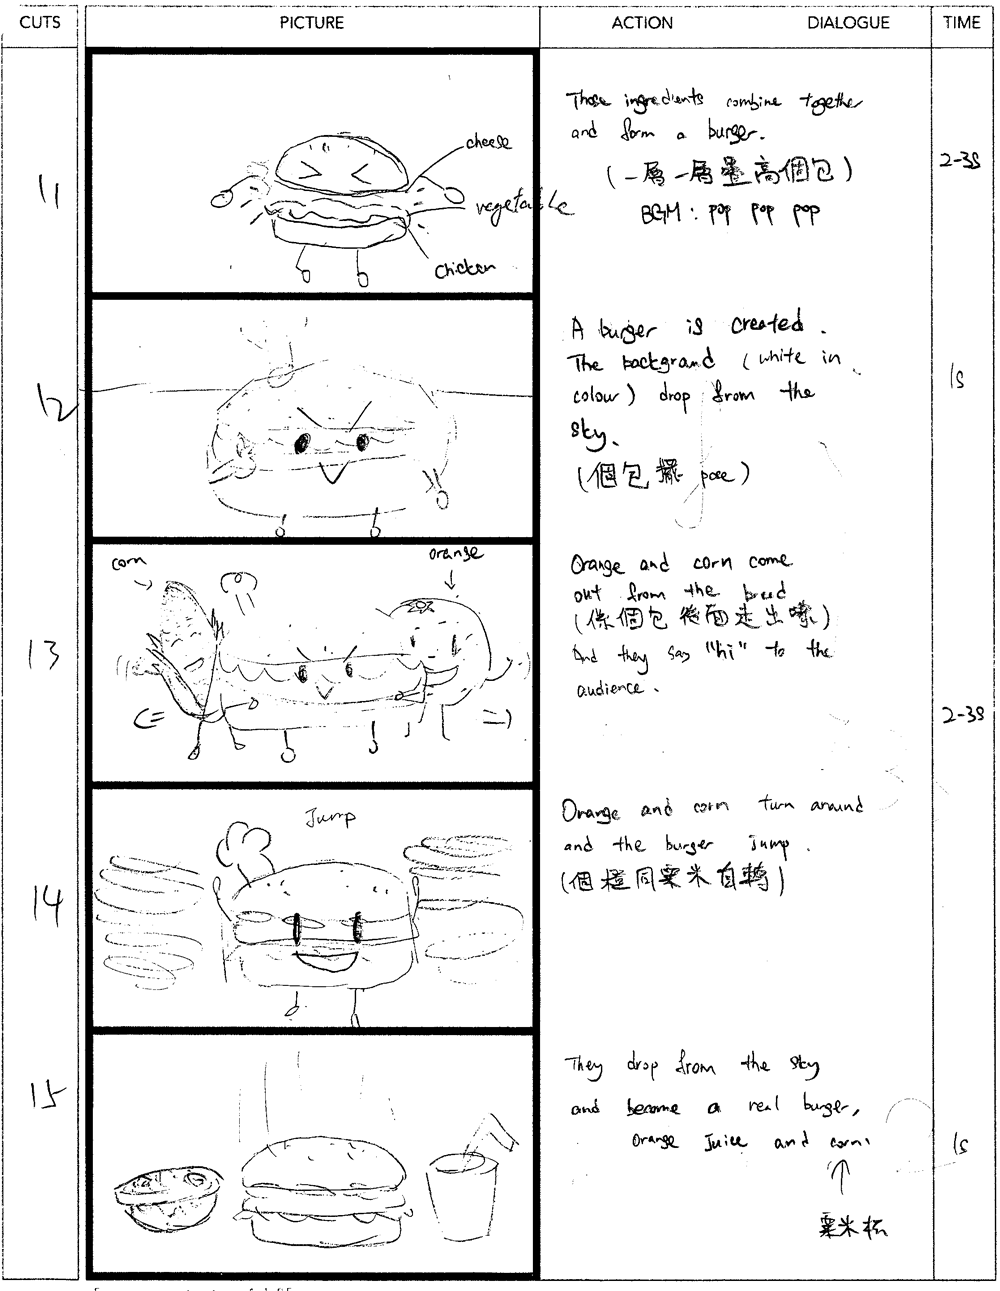 CUTS
PICTURE
ACTION
DIALOGUE
TIME
11
cheese
vegetable
chicken
Those ingredients combine together
and form a burger.
(一層一層疊高個包)
BGM: pop pop pop
2-3s
12
A burger is created.
The backgrand (white in
colour) drop from the
sky.
(個包擺 pose)
1s
13
corn
orange
Orange and corn come
out from the bread
(係個包後面走出嚟)
And they say "hi" to the
audience.
2-3s
14
Jump
Orange and corn turn around
and the burger jump.
(個橙同粟米自轉)
15
They drop from the sky
and become a real burger,
orange juice and corn.
粟米杯
1s